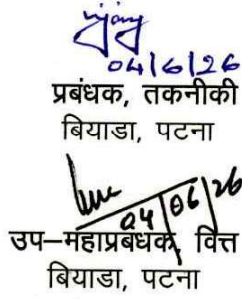 04/6/26
प्रबंधक, तकनीकी
बियाडा, पटना
04/06/26
उप-महाप्रबंधक, वित्त
बियाडा, पटना